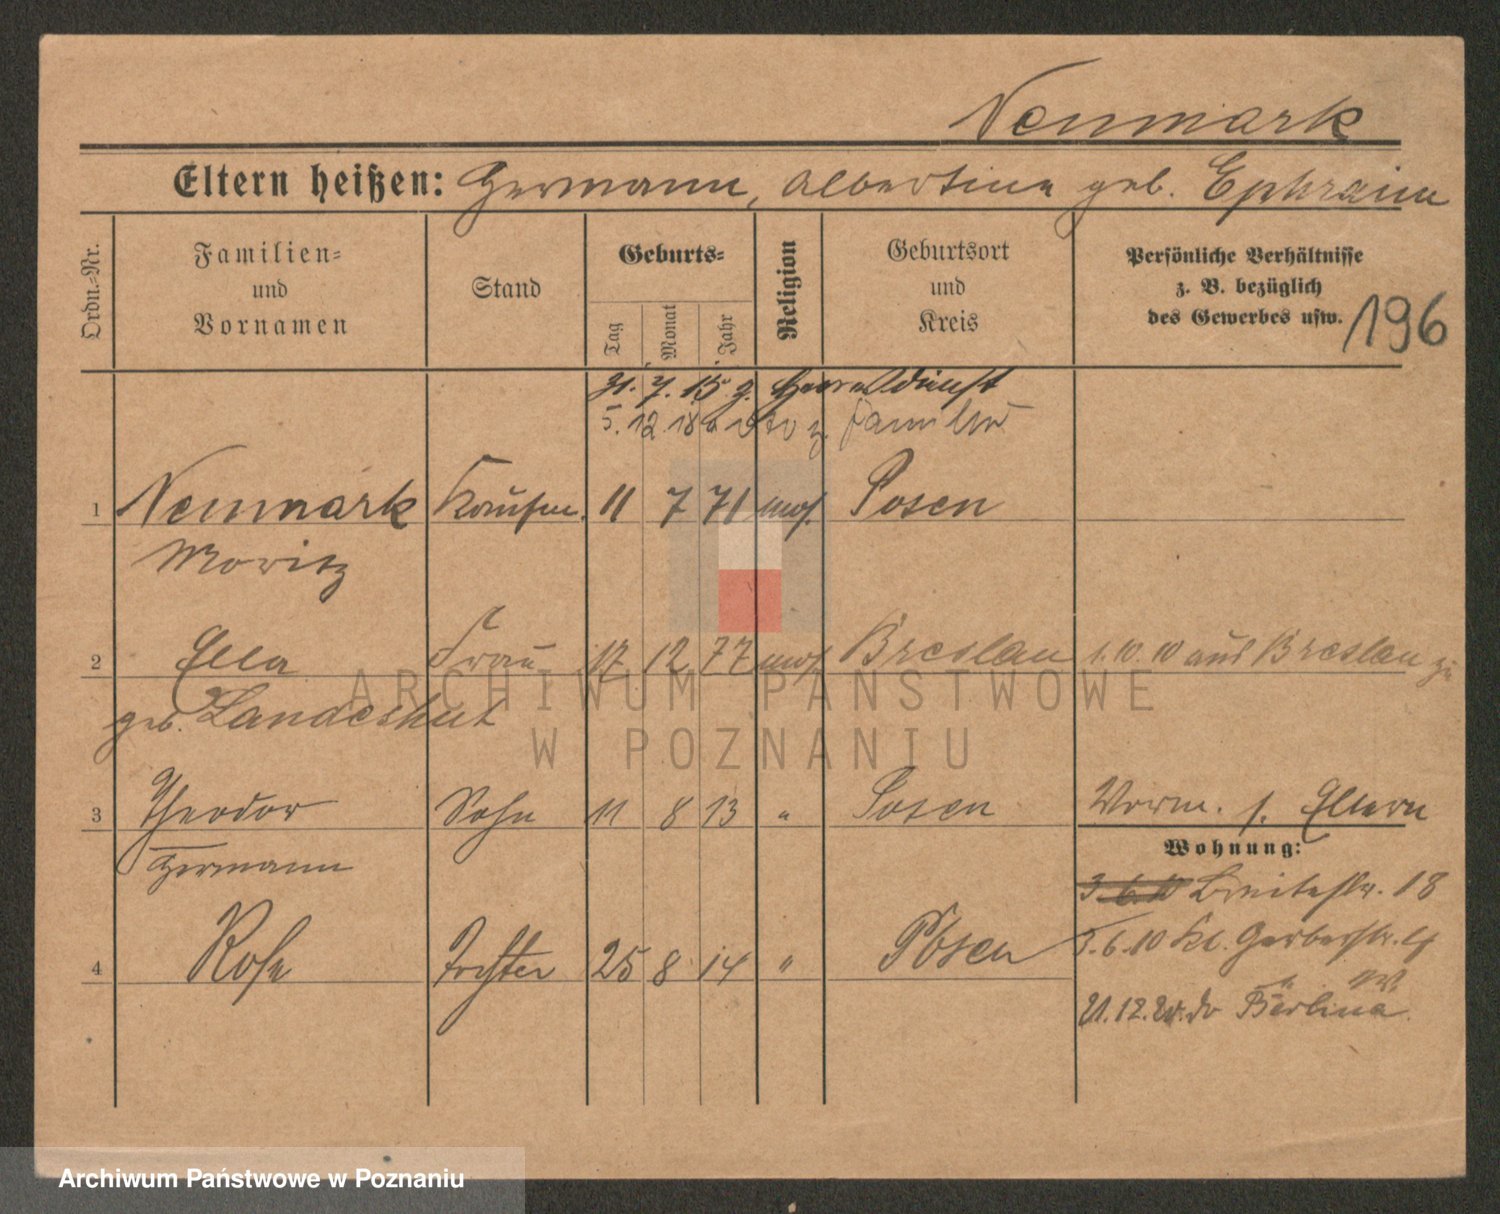 Neumark
Eltern heißen: Hermann, Albertine geb. Ephraim
Ordn.-Nr.
Familien- und Vornamen
Stand
Geburts-
Tag
Monat
Jahr
Religion
Geburtsort und Kreis
Persönliche Verhältnisse
z. B. bezüglich
des Gewerbes usw.
196
7. 15 z. Heeresdienst
5. 12. 18 z. Familie
1 Neumark Kaufm. 11 7 71 mos. Posen
Moritz
2 Ella Frau 17 12 77 mos. Breslau 1. 10. 10 aus Breslau zu
geb. Landeshut
3 Theodor Sohn 11 8 13 " Posen Vorm. s. Eltern
Hermann
Wohnung:
3.6.10 Breitestr. 18
4 Rosa Tochter 25 8 14 " Posen
3.6.10 Kl. Gerberstr. 4
21.12. Berlin
ARCHIWUM PAŃSTWOWE
W POZNANIU
Archiwum Państwowe w Poznaniu